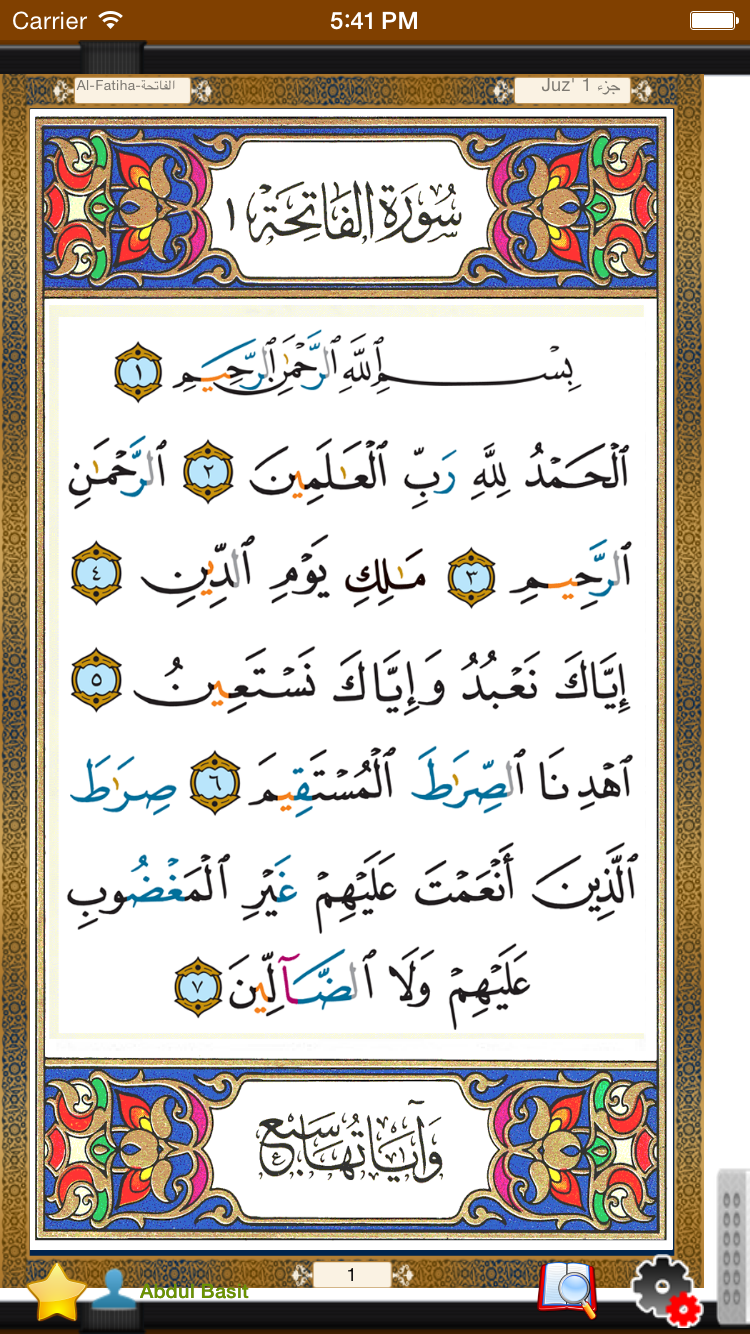 Carrier 5:41 PM
Al-Fatiha-الفاتحة Juz' 1 جزء
سُورَةُ الفَاتِحَة ١
بِسْمِ ٱللَّهِ ٱلرَّحْمَٰنِ ٱلرَّحِيمِ ١
ٱلْحَمْدُ لِلَّهِ رَبِّ ٱلْعَٰلَمِينَ ٢ ٱلرَّحْمَٰنِ
ٱلرَّحِيمِ ٣ مَٰلِكِ يَوْمِ ٱلدِّينِ ٤
إِيَّاكَ نَعْبُدُ وَإِيَّاكَ نَسْتَعِينُ ٥
ٱهْدِنَا ٱلصِّرَٰطَ ٱلْمُسْتَقِيمَ ٦ صِرَٰطَ
ٱلَّذِينَ أَنْعَمْتَ عَلَيْهِمْ غَيْرِ ٱلْمَغْضُوبِ
عَلَيْهِمْ وَلَا ٱلضَّآلِّينَ ٧
وَآيَاتُهَا سَبْع
1
Abdul Basit